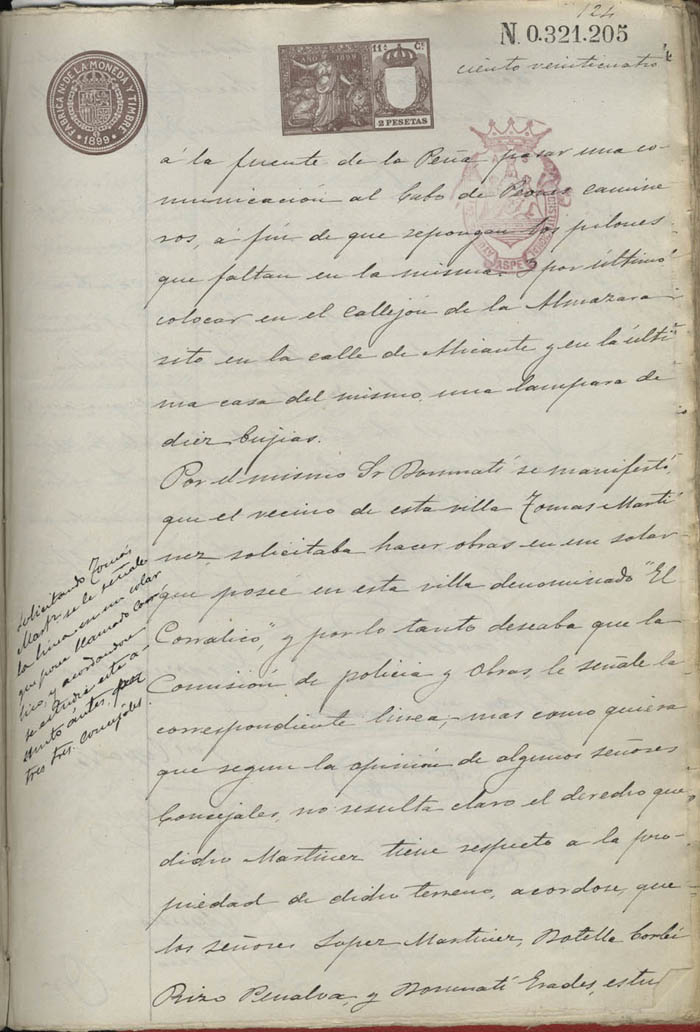 124
N. 0.321.205
ciento veinticuatro
FABRICA Nal DE LA MONEDA Y TIMBRE
1899
AÑO 1899
11ª Cª
2 PESETAS
ASPE
á la fuente de la Peña pasar una co-
municación al Cabo de Peones camine-
ros, á fin de que repongan los pilones
que faltan en la misma. Y por último
colocar en el callejón de la Almazara
sito en la calle de Alicante y en la últi-
ma casa del mismo una lampara de
diez bujias.
Por el mismo Sr Bonmatí se manifestó,
que el vecino de esta villa Tomas Martí
nez, solicitaba hacer obras en un solar
que posée en esta villa denominado "El
Corralico", y por lo tanto deseaba que la
Comisión de policia y Obras, le señale la
correspondiente linea, mas como quiera
que segun la opinión de algunos señores
Concejales, no resulta claro el derecho que
dicho Martinez tiene respecto a la pro-
piedad de dicho terreno, acordose, que
los señores Lopez Martinez, Botella Corbí
Rizo Penalva, y Bonmatí Erades, estu
Solicitando Tomás
Martz. se le señale
la linea en un solar
que posee llamado Corra
lico, y acordandose
se estudie este a-
sunto ántes, por
tres Sres. Concejales